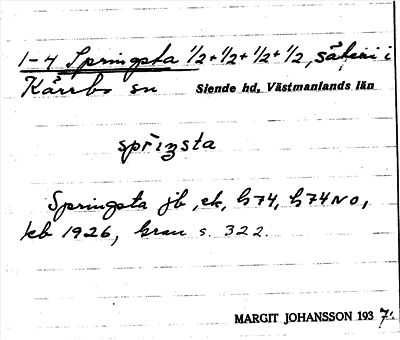 1-4 Springsta 1/2+1/2+1/2+1/2, säteri i
Kärrbo sn Siende hd, Västmanlands län
spriŋsta
Springsta jb, ek, G74, G74NO,
kb 1926, Grau s. 322.
MARGIT JOHANSSON 1937.